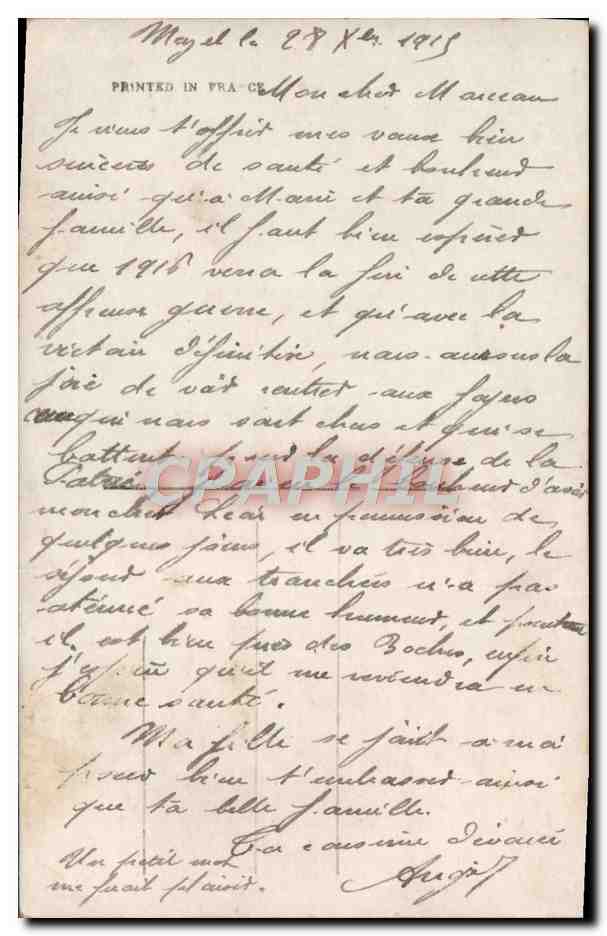 le 28 Xbre 1915
PRINTED IN FRANCE
Mon cher Marceau
Je viens t'offrir mes vœux bien
sincères de santé et bonheur
ainsi qu'à Marie et ta grande
famille, il faut bien espérer
que 1916 verra la fin de cette
affreuse guerre, et qu'avec la
victoire définitive, nous aurons la
joie de voir rentrer aux foyers
ceux qui nous sont chers et qui se
battent pour la défense de la
Patrie, le bonheur d'avoir
mon cher Léon en permission de
quelques jours, il va très bien, le
séjour aux tranchées n'a pas
atténué sa bonne humeur, et pourtant
il est bien près des Boches, enfin
j'espère qu'il me reviendra en
bonne santé.
Ma fille se joint à moi
pour bien t'embrasser ainsi
que ta belle famille.
Ta cousine dévouée
Un petit mot
me ferait plaisir.
CPAPHIL